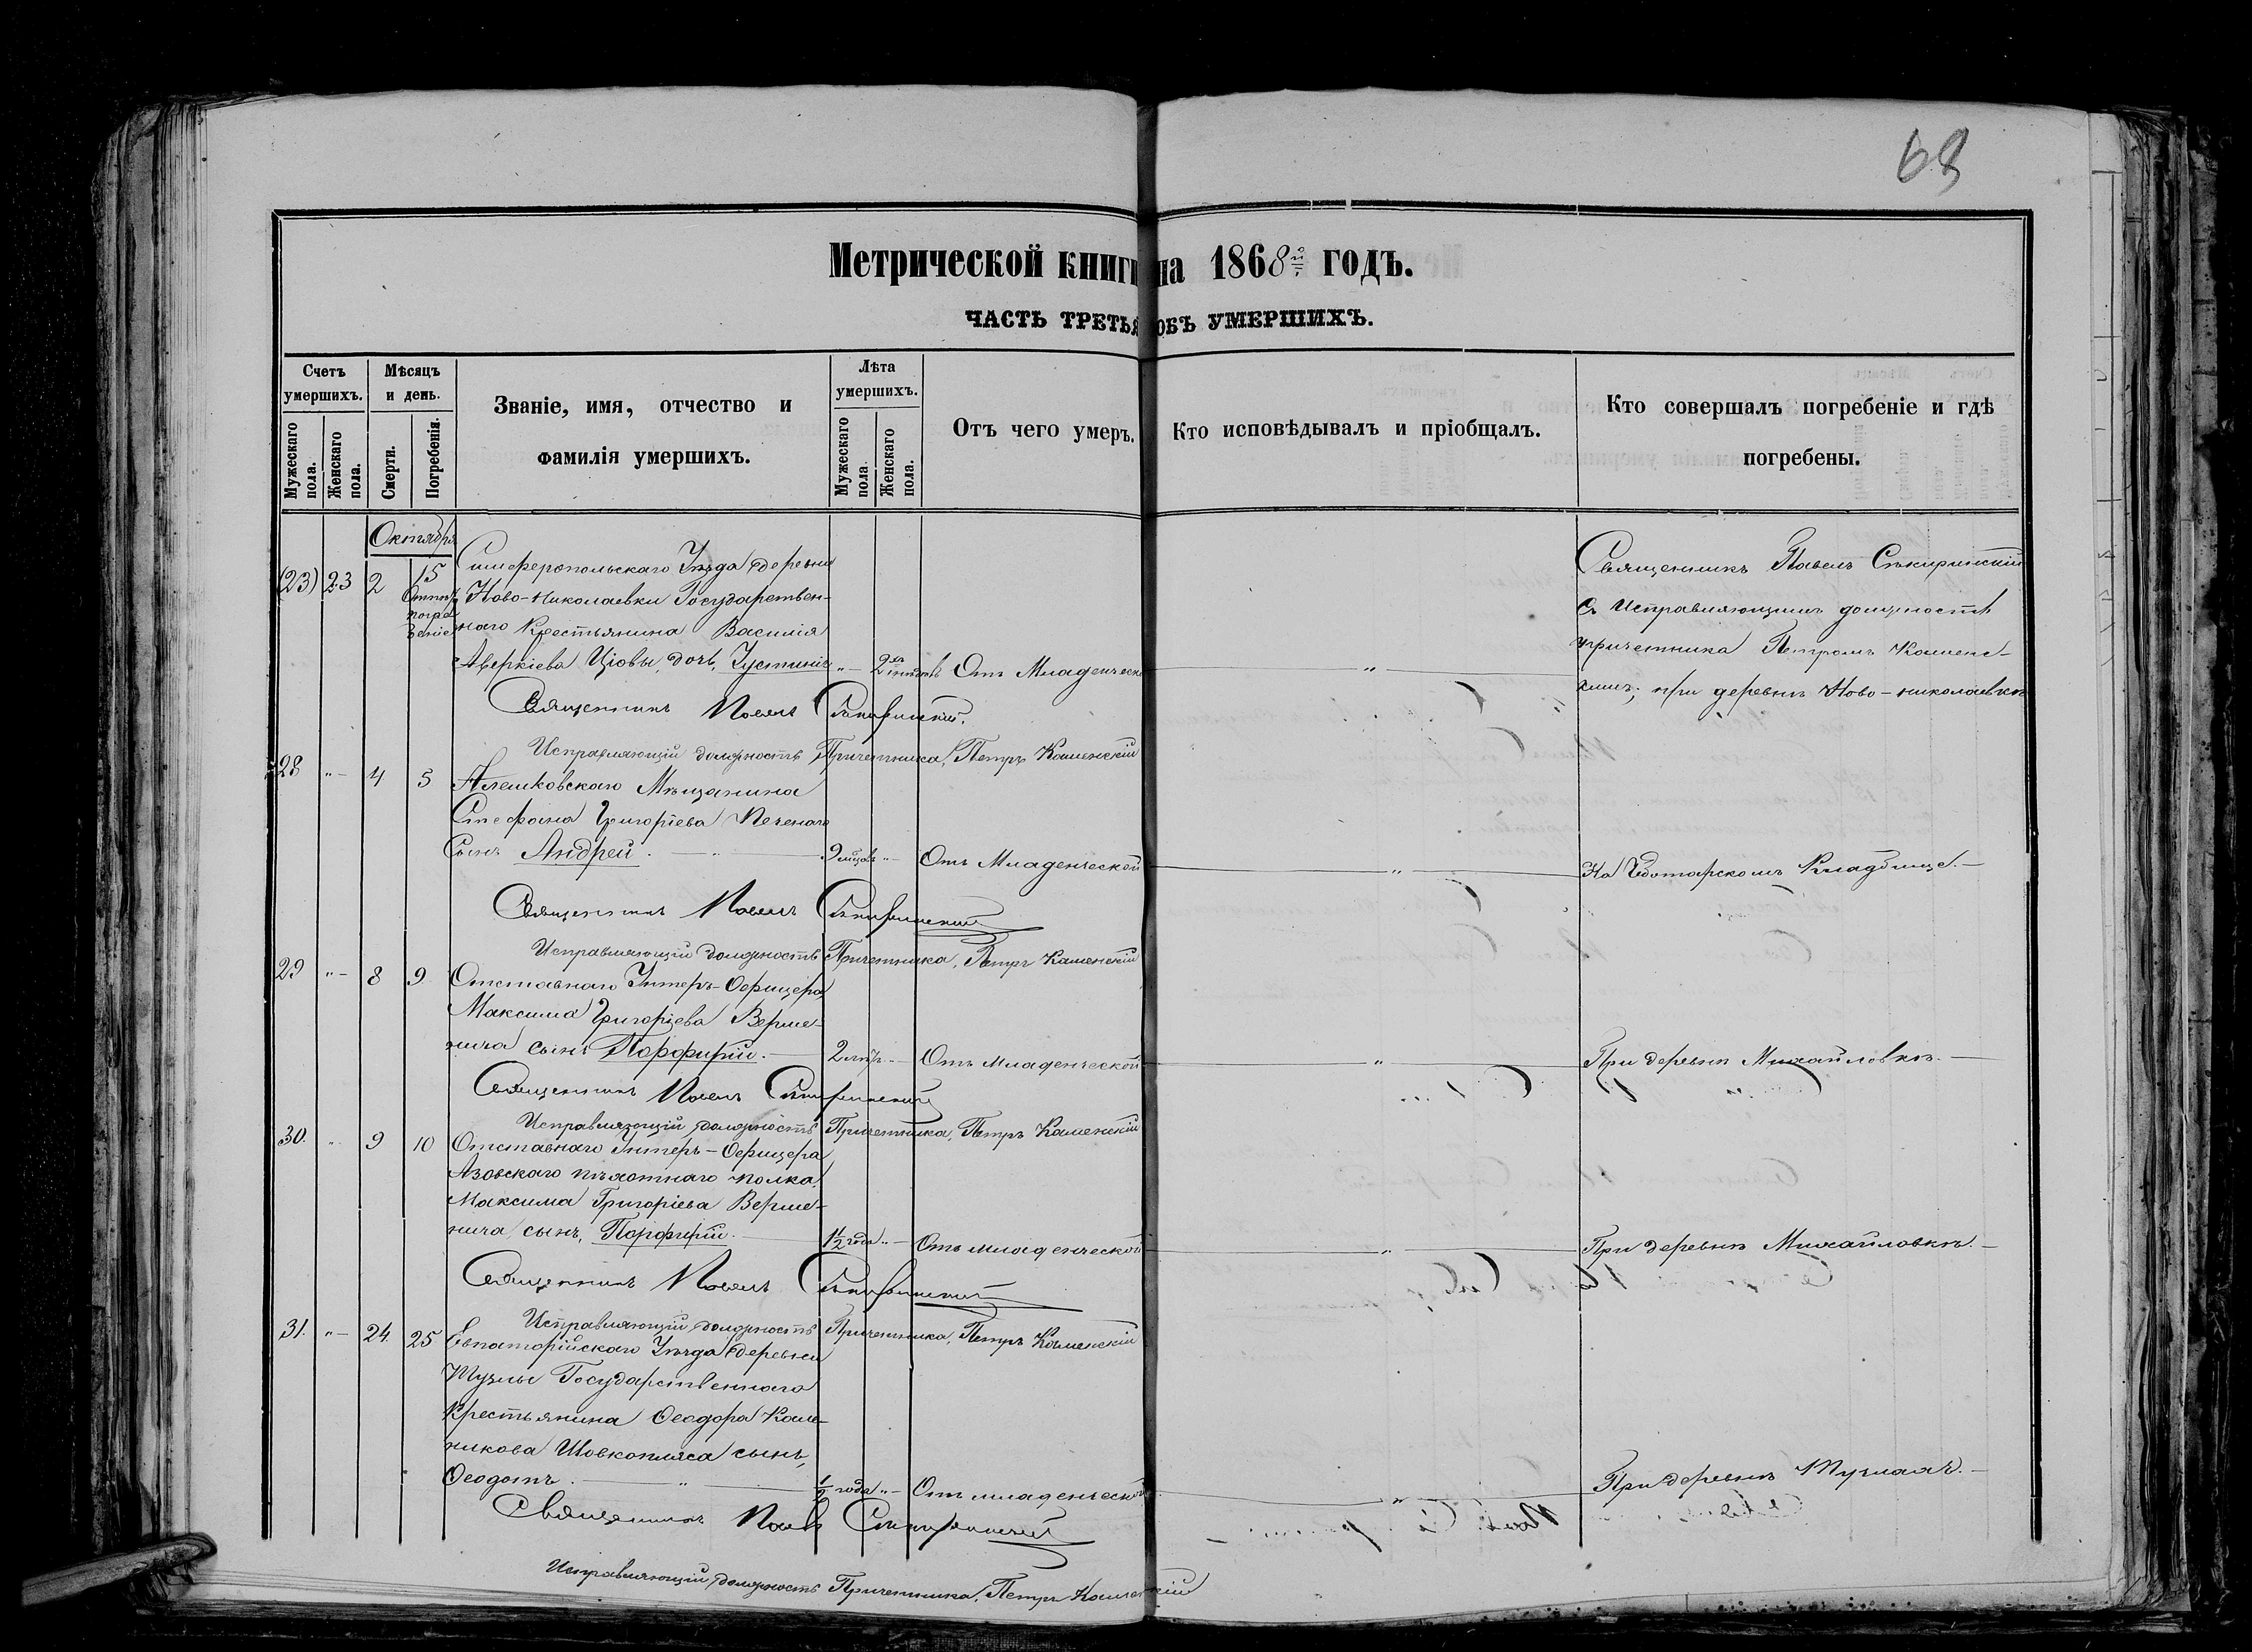 68
Метрической книги на 1868й годъ.
ЧАСТЬ ТРЕТЬЯ ОБЪ УМЕРШИХЪ.
Счетъ умершихъ.
Мужескаго пола.
Женскаго пола.
Мѣсяцъ и день.
Смерти.
Погребенія.
Званіе, имя, отчество и
фамилія умершихъ.
Лѣта умершихъ.
Мужескаго пола.
Женскаго пола.
Отъ чего умеръ.
Кто исповѣдывалъ и пріобщалъ.
Кто совершалъ погребеніе и гдѣ
погребены.
Октября
(23) 23 2 15
Симферопольскаго Уѣзда деревни
Ново-Николаевки Государствен-
наго Крестьянина Василія
Аверкіева дочь, Іустинія "— 2 Отъ Младенческ — " —
Священникъ Павелъ Сѣкиринскій
Съ Исправляющимъ должность
причетника Петромъ Каменс-
кимъ; при деревнѣ Ново-николаевкѣ
Священникъ Павелъ Сѣкиринскій.
Исправляющій должность Причетника, Петръ Каменскій
28 "— 4 5 Алешковскаго Мѣщанина
Стефана Григоріева Печенаго
Сынъ Андрей. — " — 9 мѣсяц. "— Отъ Младенческой — " — На Чоботарскомъ Кладбище. —
Священникъ Павелъ Сѣкиринскій
Исправляющій должность Причетника, Петръ Каменскій
29 "— 8 9 Отставнаго Унтеръ-Офицера
Максима Григоріева Верме-
нича сынъ Порфирій. — 2 лѣтъ "— Отъ Младенческой — " — При деревнѣ Михайловкѣ. —
Священникъ Павелъ Сѣкиринскій
Исправляющій должность Причетника, Петръ Каменскій
30. " 9 10 Отставнаго Унтеръ-Офицера
Азовскаго пѣхотнаго полка
Максима Григоріева Верме-
нича сынъ, Порфирій. — 1½ года "— Отъ младенческой — " — При деревнѣ Михайловкѣ. —
Священникъ Павелъ Сѣкиринскій
Исправляющій должность Причетника, Петръ Каменскій
31. "— 24 25 Евпаторійскаго Уѣзда деревни
Тузлы Государственнаго
Крестьянина Ѳеодора
Шовкопляса сынъ,
Ѳеодотъ. — " — ½ года "— Отъ младенческой — " — При деревнѣ Тузлахъ. —
Священникъ Павелъ Сѣкиринскій
Исправляющій должность Причетника, Петръ Каменскій